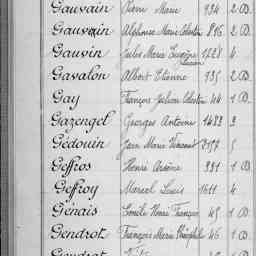 Gauvain Pierre Marie 934 2 D.
Gauvain Alphonse Marie Célestin 896 2 D.
Gauvin Jules Marie Eugène Lucien 1528 4
Gavalon Albert Etienne 735 2 D.
Gay François Julien Célestin 44 1 D.
Gazengel Georges Antoine 1483 3
Gédouin Jean Marie Vincent 2157 5
Geffros Henri Arsène 331 1 D.
Geffroy Marcel Louis 1611 4
Génais Emile Henri François 45 1 D.
Gendrot François Marie Théophile 46 1 D.
Gendrot